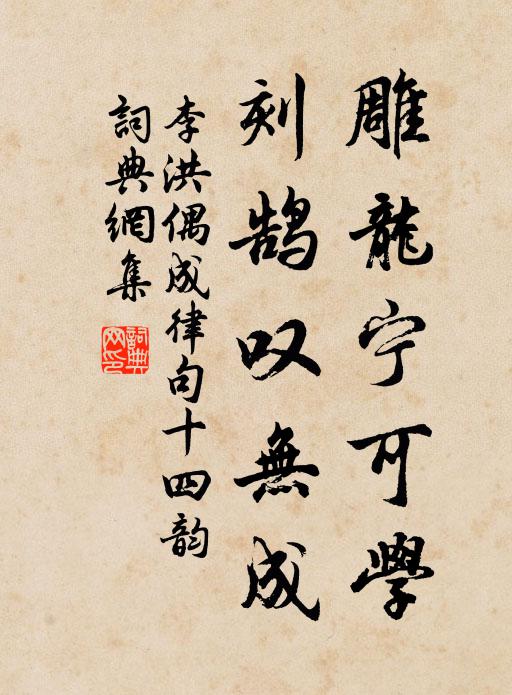 雕龍宁可學
刻鹄叹無成
李洪偶成律句十四韵
詞典網集
詞典
网印